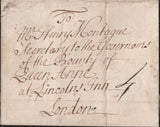 To
Mr Henry Montague
Secretary to the Governors
of the Bounty of
Queen Anne
at Lincolns Inn 4
London